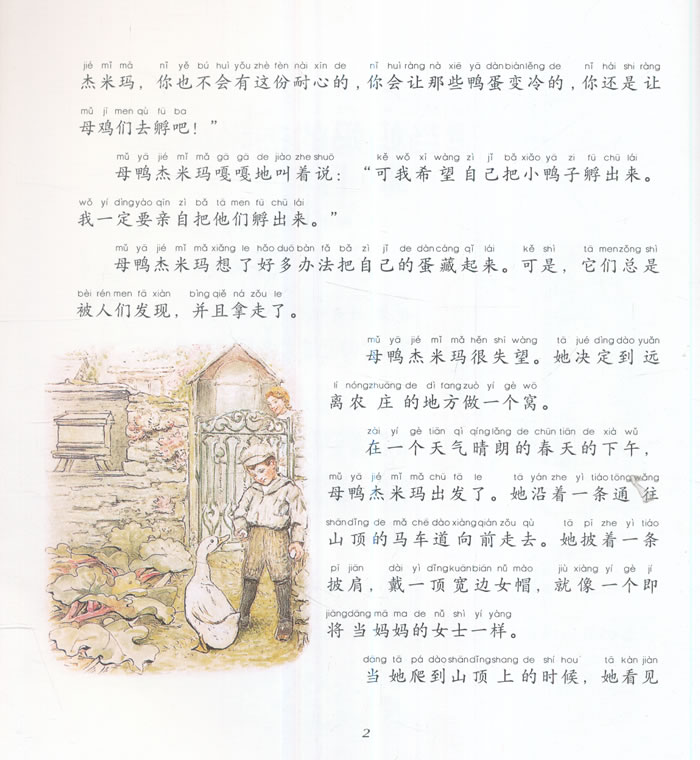 jié mǐ mǎ nǐ yě bú huì yǒu zhè fèn nài xīn de nǐ huì ràng nà xiē yā dàn biàn lěng de nǐ hái shi ràng
杰米玛，你也不会有这份耐心的，你会让那些鸭蛋变冷的，你还是让
mǔ jī men qù fū ba
母鸡们去孵吧！”
mǔ yā jié mǐ mǎ gā gā de jiào zhe shuō kě wǒ xī wàng zì jǐ bǎ xiǎo yā zi fū chū lái
母鸭杰米玛嘎嘎地叫着说：“可我希望自己把小鸭子孵出来。
wǒ yí dìng yào qīn zì bǎ tā men fū chū lái
我一定要亲自把他们孵出来。”
mǔ yā jié mǐ mǎ xiǎng le hǎo duō bàn fǎ bǎ zì jǐ de dàn cáng qǐ lái kě shì tā men zǒng shì
母鸭杰米玛想了好多办法把自己的蛋藏起来。可是，它们总是
bèi rén men fā xiàn bìng qiě ná zǒu le
被人们发现，并且拿走了。
mǔ yā jié mǐ mǎ hěn shī wàng tā jué dìng dào yuǎn
母鸭杰米玛很失望。她决定到远
lí nóng zhuāng de dì fang zuò yí gè wō
离农庄的地方做一个窝。
zài yí gè tiān qì qíng lǎng de chūn tiān de xià wǔ
在一个天气晴朗的春天的下午，
mǔ yā jié mǐ mǎ chū fā le tā yán zhe yì tiáo tōng wǎng
母鸭杰米玛出发了。她沿着一条通往
shān dǐng de mǎ chē dào xiàng qián zǒu qù tā pī zhe yì tiáo
山顶的马车道向前走去。她披着一条
pī jiān dài yì dǐng kuān biān nǚ mào jiù xiàng yí gè jí
披肩，戴一顶宽边女帽，就像一个即
jiāng dāng mā ma de nǚ shì yí yàng
将当妈妈的女士一样。
dāng tā pá dào shān dǐng shang de shí hou tā kàn jiàn
当她爬到山顶上的时候，她看见
2